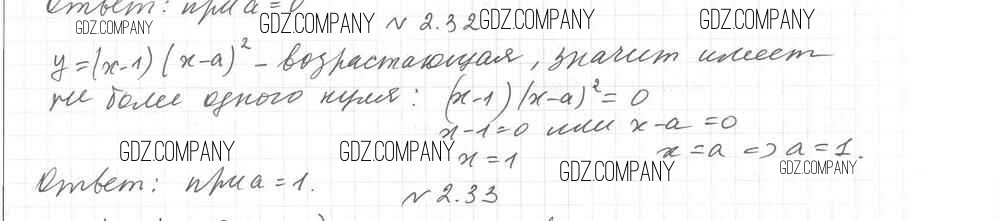 Ответ: при a = 0
GDZ.COMPANY GDZ.COMPANY N 2.32 GDZ.COMPANY GDZ.COMPANY
y = (x-1)(x-a)² - возрастающая, значит имеет
не более одного нуля: (x-1)(x-a)² = 0
x-1=0 или x-a=0
GDZ.COMPANY GDZ.COMPANY x=1 x=a => a=1.
GDZ.COMPANY GDZ.COMPANY
Ответ: при a=1.
N 2.33